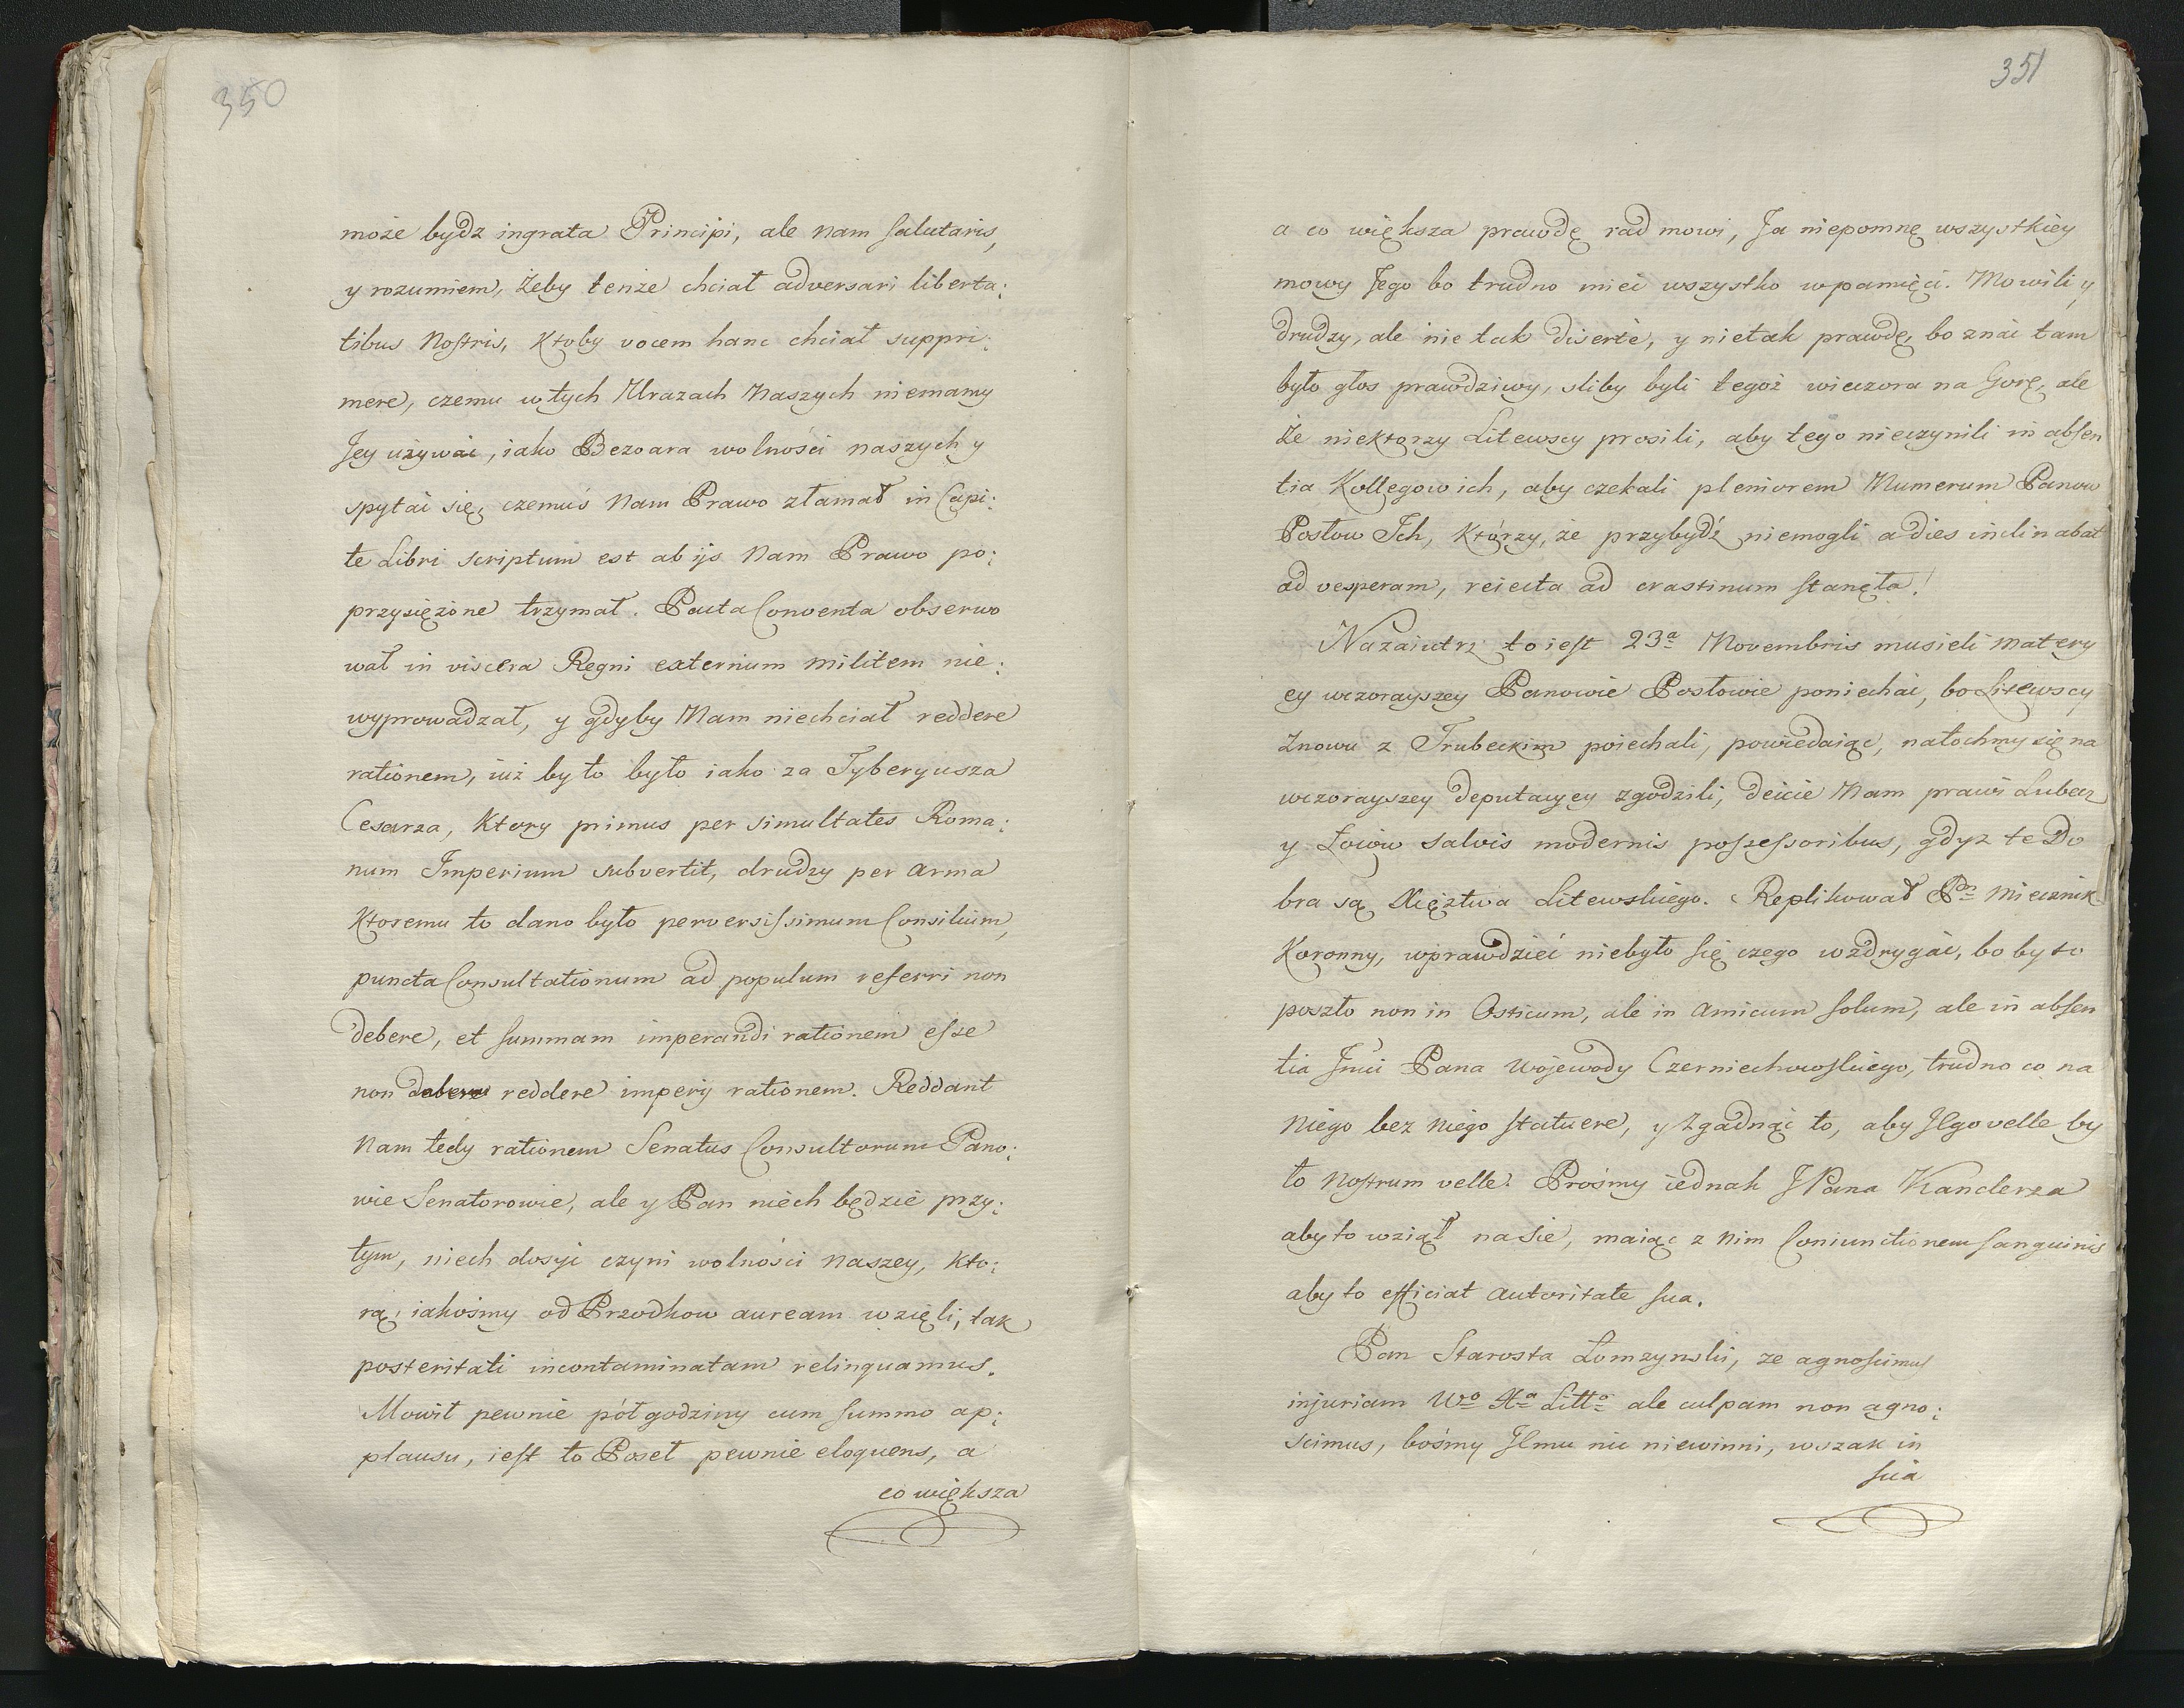 350
może bydz ingrata Principi, ale nam salutaris,
y rozumiem, żeby tenże chciał adversari liberta:
tibus Nostris, Ktoby vocem hanc chciał suppri:
mere, czemu w tych Urazach Naszych niemamy
Jey używać, iako Bezoara wolności naszych y
spytać się, czemuś Nam Prawo złamał in Capi:
te Libri scriptum est ab ijs Nam Prawo po:
przysiężone trzymał. Pacta Conventa obserwo
wał in viscera Regni externum militem nie:
wyprowadzał, y gdyby Nam niechciał reddere
rationem, iuż by to było iako za Tyberyusza
Cesarza, Ktory primus per simultates Roma:
num Imperium subvertit, drudzy per arma
Ktoremu to dano było perversissimum Consilium,
puncta Consultationum ad populum referri non
debere, et summam imperandi rationem esse
non debere reddere impery rationem. Reddant
Nam tedy rationem Senatus Consultorum Pano:
wie Senatorowie, ale y Pan niech będzie przy:
tym, niech dosyć czyni wolności Naszey, kto:
rą, iakośmy od Przodkow auream wzięli, tak
posteritati incontaminatam relinquamus.
Mowił pewnie pół godziny cum summo ap:
plausu, iest to Poseł pewnie eloquens, a
co większa
351
a co większa prawdę rad mowi, Ja niepomnę wszystkiey
mowy Jego bo trudno mieć wszystko w pamięci. Mowili y
drudzy, ale nie tak diserte, y nie tak prawdę, bo znać tam
było głos prawdziwy, sliby byli tegoż wieczora na Gorę, ale
że niektorzy Litewscy prosili, aby tego nieczynili in absen
tia Kollegow ich, aby czekali pleniorem Numerum Panow
Posłow Ich, Którzy, że przybydź niemogli a dies inclinabat
ad vesperam, reiecta ad crastinum stanęła!
Nazaiutrz to iest 23a Novembris musieli matery
ey wczorayszey Panowie Posłowie poniechać, bo Litewscy
znowu z Trubeckim poiechali, powiedaiąc, natochmy się na
wczorayszey deputacyey zgodzili, deicie Nam prawi Lubecz
y Łoiow salvis modernis possessoribus, gdyz te Do
bra są Xięztwa Litewskiego. Replikował Pn Miecznik
Koronny, wprawdzieć niebyło się czego wzdrygać, bo by to
poszło non in Osticum, ale in amicum solum, ale in absen
tia Jmci Pana Wojewody Czerniechowskiego, trudno co na
niego bez niego statuere, y zgadnąć to, aby Jego velle by
ło Nostrum velle. Prośmy iednak JPana Kanclerza
aby to wziął na sie, maiąc z nim Coniunctionem sanguinis
aby to efficiat autoritate sua.
Pan Starosta Łomzynski, ze agnoscimus
injuriam Wo Xa Litto ale culpam non agno:
scimus, bośmy Jemu nic niewinni, wszak in
sua